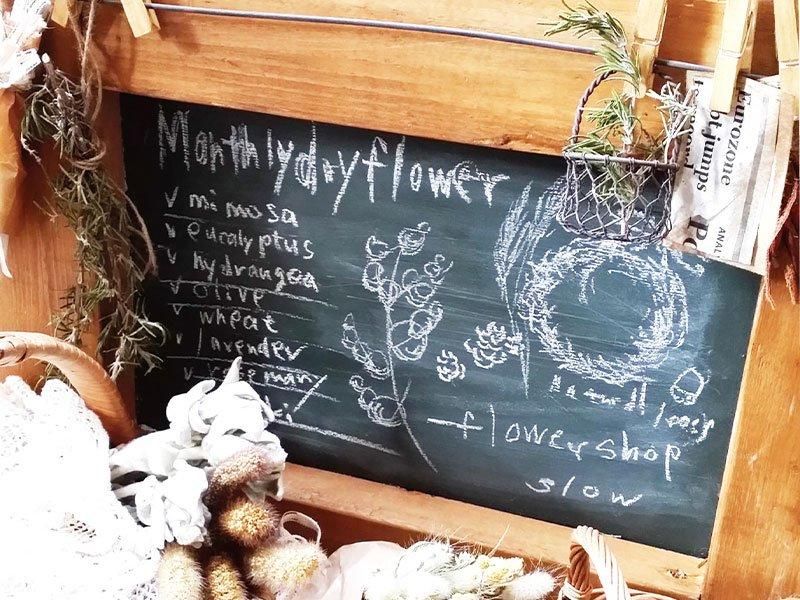 Monthly dry flower
✓ mimosa
✓ eucalyptus
✓ hydrangea
✓ olive
✓ wheat
✓ lavender
✓ rosemary
flower shop
slow
Eurozone
bt jumps
ANAL